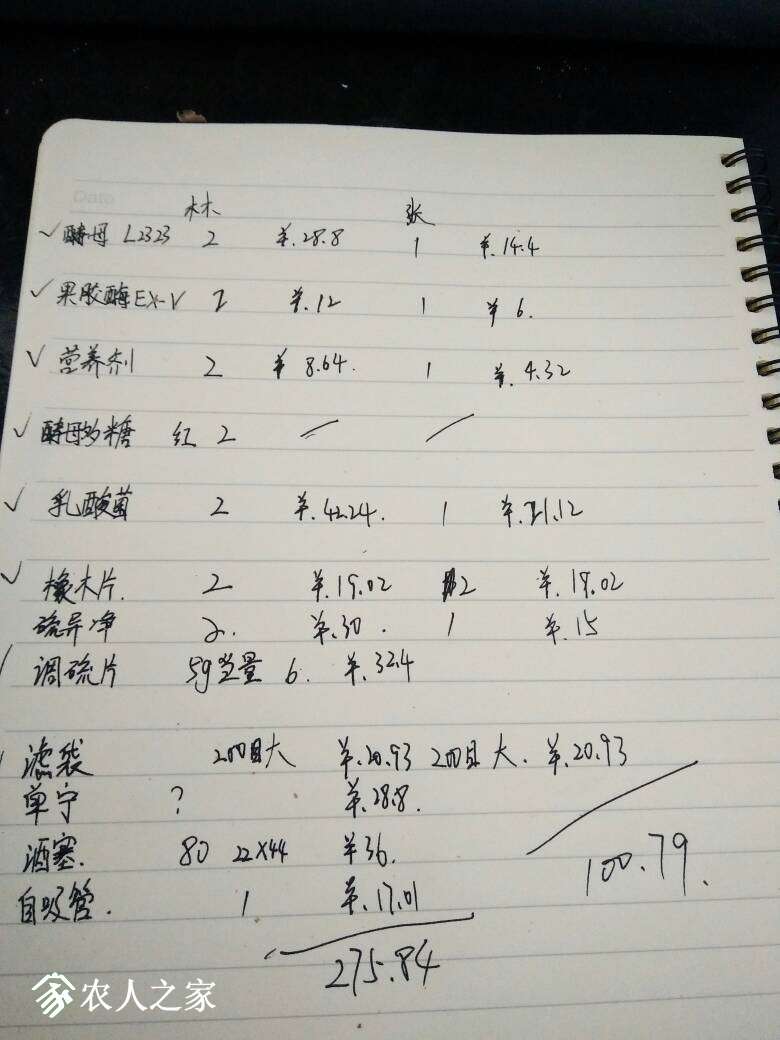 Date
林 张
✓ 酵母 L2323 2 ¥.28.8 1 ¥.14.4
✓ 果胶酶 EX-V 2 ¥.12 1 ¥ 6.
✓ 营养剂 2 ¥ 8.64. 1 ¥.4.32
✓ 酵母多糖 红 2
✓ 乳酸菌 2 ¥.42.24. 1 ¥.21.12
✓ 橡木片. 2 ¥.19.02 2 ¥.19.02
硫异净 2. ¥.30. 1 ¥.15
调硫片 5g当量 6. ¥.32.4
滤袋 200目大 ¥.20.93 200目 大. ¥.20.93
单宁 ? ¥.28.8.
酒塞. 80 22×44 ¥36.
自吸管. 1 ¥.17.01
100.79.
275.84
农人之家